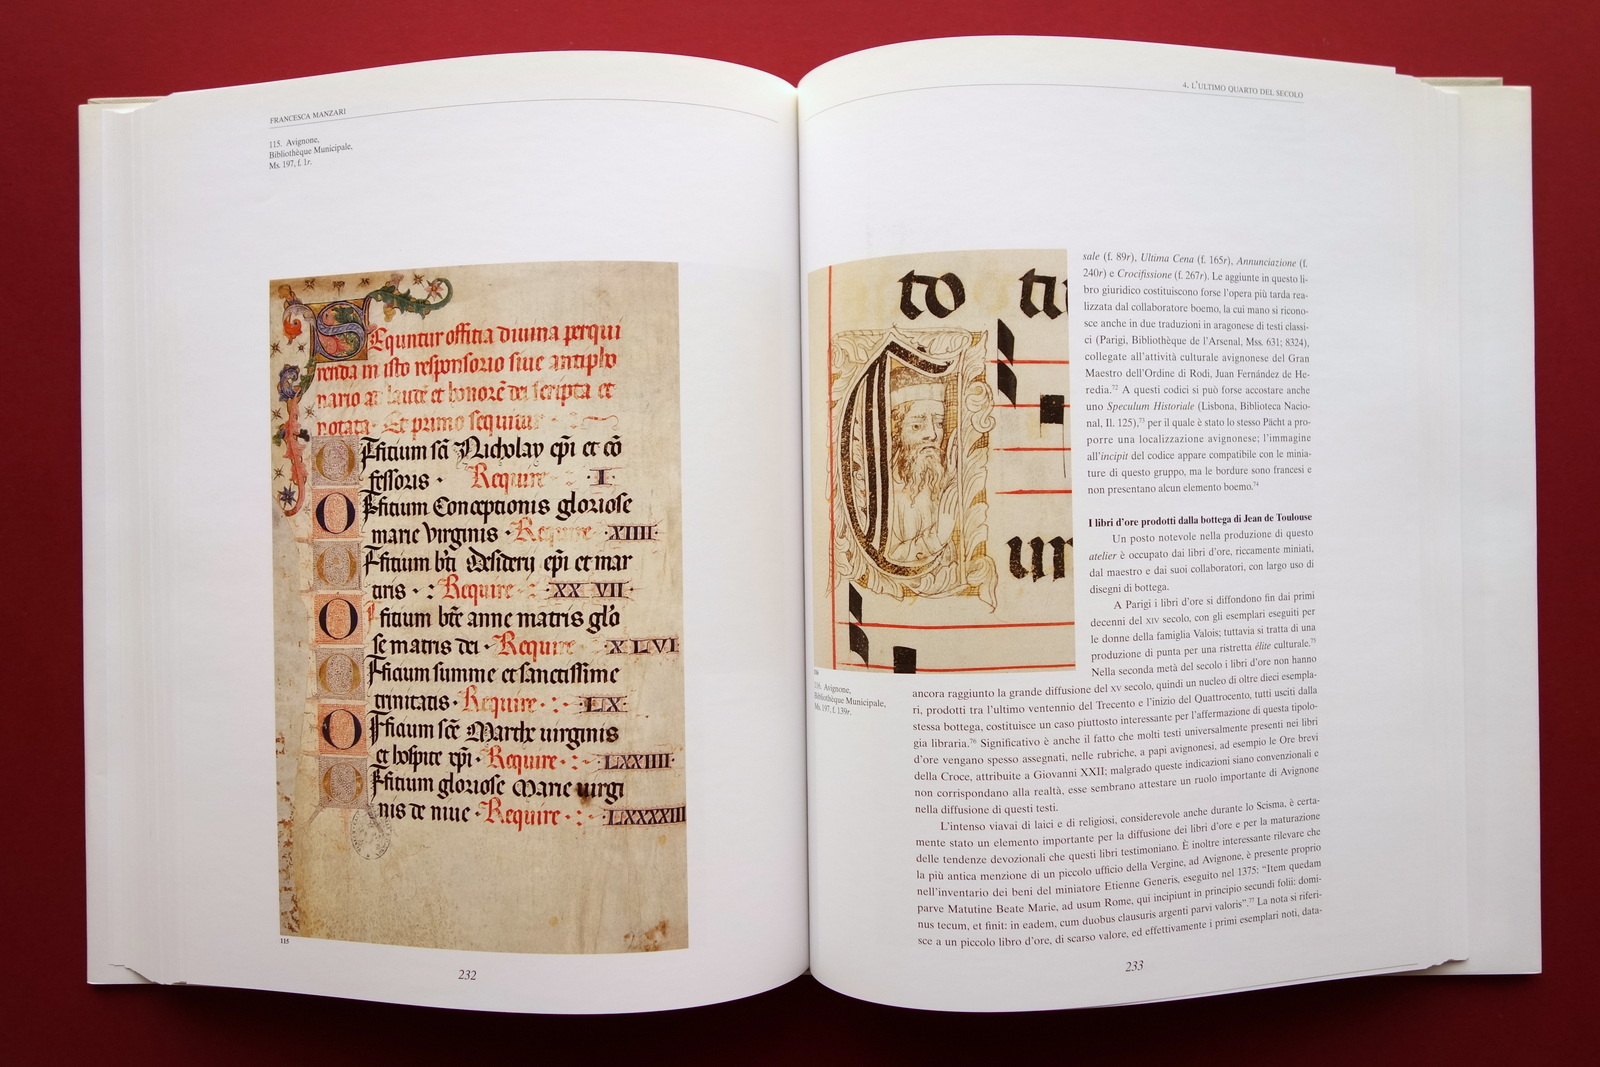 FRANCESCA MANZARI
115. Avignone,
Bibliothèque Municipale,
Ms. 197, f. 1r.
SEquntur officia diuina perqui
renda in isto responsorio siue antipho
nario ad laudē et honorē dei scripta et
notata. Et primo sequitur
Officium sci Nicholay epi et cō
fessoris · Require · I ·
Officium Conceptionis gloriose
marie virginis · Require · XIIII ·
Officium bti Desidery epi et mar
tiris · : Require · : XX VII ·
Officium bte anne matris glo
se matris dei · Require · XLVI
Officium summe et sanctissime
trinitatis · Require · : · LX ·
Officium sce Marthe uirginis
et hospite xpi · Require · : · LXXIIII ·
Officium gloriose Marie uirgi
nis de niue · Require · : · LXXXXIII
115
232
4. L'ULTIMO QUARTO DEL SECOLO
to tu
un
116
116. Avignone,
Bibliothèque Municipale,
Ms. 197, f. 139r.
sale (f. 89r), Ultima Cena (f. 165r), Annunciazione (f.
240r) e Crocifissione (f. 267r). Le aggiunte in questo li-
bro giuridico costituiscono forse l'opera più tarda rea-
lizzata dal collaboratore boemo, la cui mano si ricono-
sce anche in due traduzioni in aragonese di testi classi-
ci (Parigi, Bibliothèque de l'Arsenal, Mss. 631; 8324),
collegate all'attività culturale avignonese del Gran
Maestro dell'Ordine di Rodi, Juan Fernández de He-
redia.72 A questi codici si può forse accostare anche
uno Speculum Historiale (Lisbona, Biblioteca Nacio-
nal, Il. 125),73 per il quale è stato lo stesso Pächt a pro-
porre una localizzazione avignonese; l'immagine
all'incipit del codice appare compatibile con le minia-
ture di questo gruppo, ma le bordure sono francesi e
non presentano alcun elemento boemo.74
I libri d'ore prodotti dalla bottega di Jean de Toulouse
Un posto notevole nella produzione di questo
atelier è occupato dai libri d'ore, riccamente miniati,
dal maestro e dai suoi collaboratori, con largo uso di
disegni di bottega.
A Parigi i libri d'ore si diffondono fin dai primi
decenni del XIV secolo, con gli esemplari eseguiti per
le donne della famiglia Valois; tuttavia si tratta di una
produzione di punta per una ristretta élite culturale.75
Nella seconda metà del secolo i libri d'ore non hanno
ancora raggiunto la grande diffusione del XV secolo, quindi un nucleo di oltre dieci esempla-
ri, prodotti tra l'ultimo ventennio del Trecento e l'inizio del Quattrocento, tutti usciti dalla
stessa bottega, costituisce un caso piuttosto interessante per l'affermazione di questa tipolo-
gia libraria.76 Significativo è anche il fatto che molti testi universalmente presenti nei libri
d'ore vengano spesso assegnati, nelle rubriche, a papi avignonesi, ad esempio le Ore brevi
della Croce, attribuite a Giovanni XXII; malgrado queste indicazioni siano convenzionali e
non corrispondano alla realtà, esse sembrano attestare un ruolo importante di Avignone
nella diffusione di questi testi.
L'intenso viavai di laici e di religiosi, considerevole anche durante lo Scisma, è certa-
mente stato un elemento importante per la diffusione dei libri d'ore e per la maturazione
delle tendenze devozionali che questi libri testimoniano. È inoltre interessante rilevare che
la più antica menzione di un piccolo ufficio della Vergine, ad Avignone, è presente proprio
nell'inventario dei beni del miniatore Etienne Generis, eseguito nel 1375: “Item quedam
parve Matutine Beate Marie, ad usum Rome, qui incipiunt in principio secundi folii: domi-
nus tecum, et finit: in eadem, cum duobus clausuris argenti parvi valoris”.77 La nota si riferi-
sce a un piccolo libro d'ore, di scarso valore, ed effettivamente i primi esemplari noti, data-
233